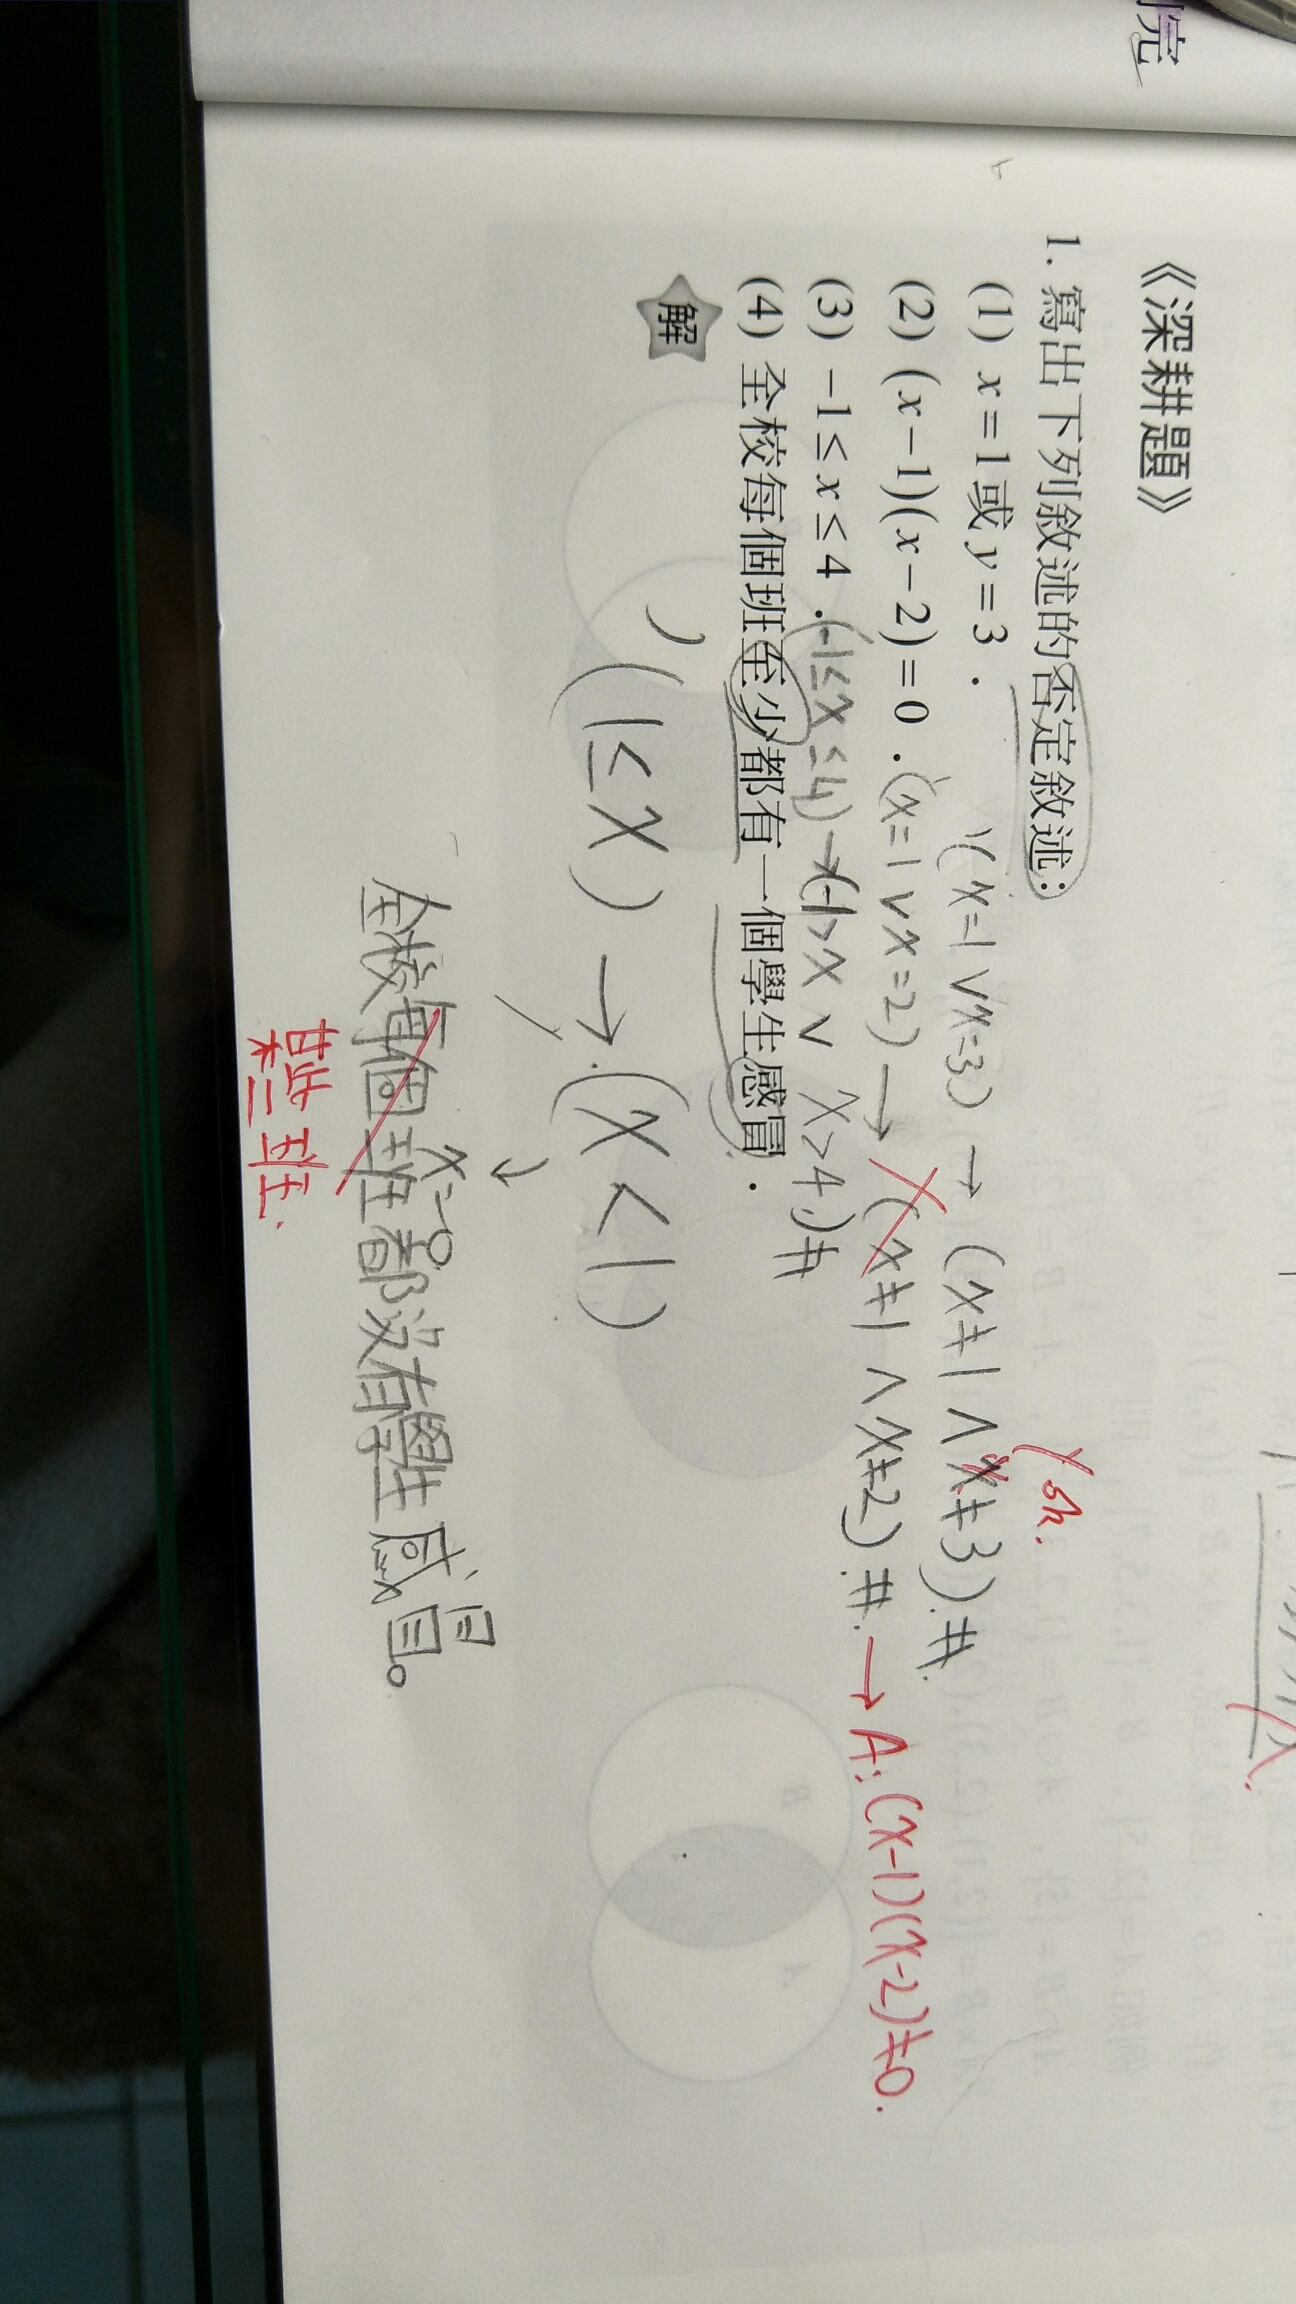 《深耕題》
1. 寫出下列敘述的否定敘述:
(1) x=1或y=3. (x=1∨x=3) → (x≠1∧x≠3)#
y sh.
(2) (x-1)(x-2)=0. (x=1∨x=2) → (x≠1∧x≠2)#. → A:(x-1)(x-2)≠0.
(3) -1≤x≤4. (-1≤x≤4) → (-1>x ∨ x>4)#
(4) 全校每個班至少都有一個學生感冒.
解
(1≤x) → (x<1)
x=0
全校每個班都沒有學生感冒。
某一班.